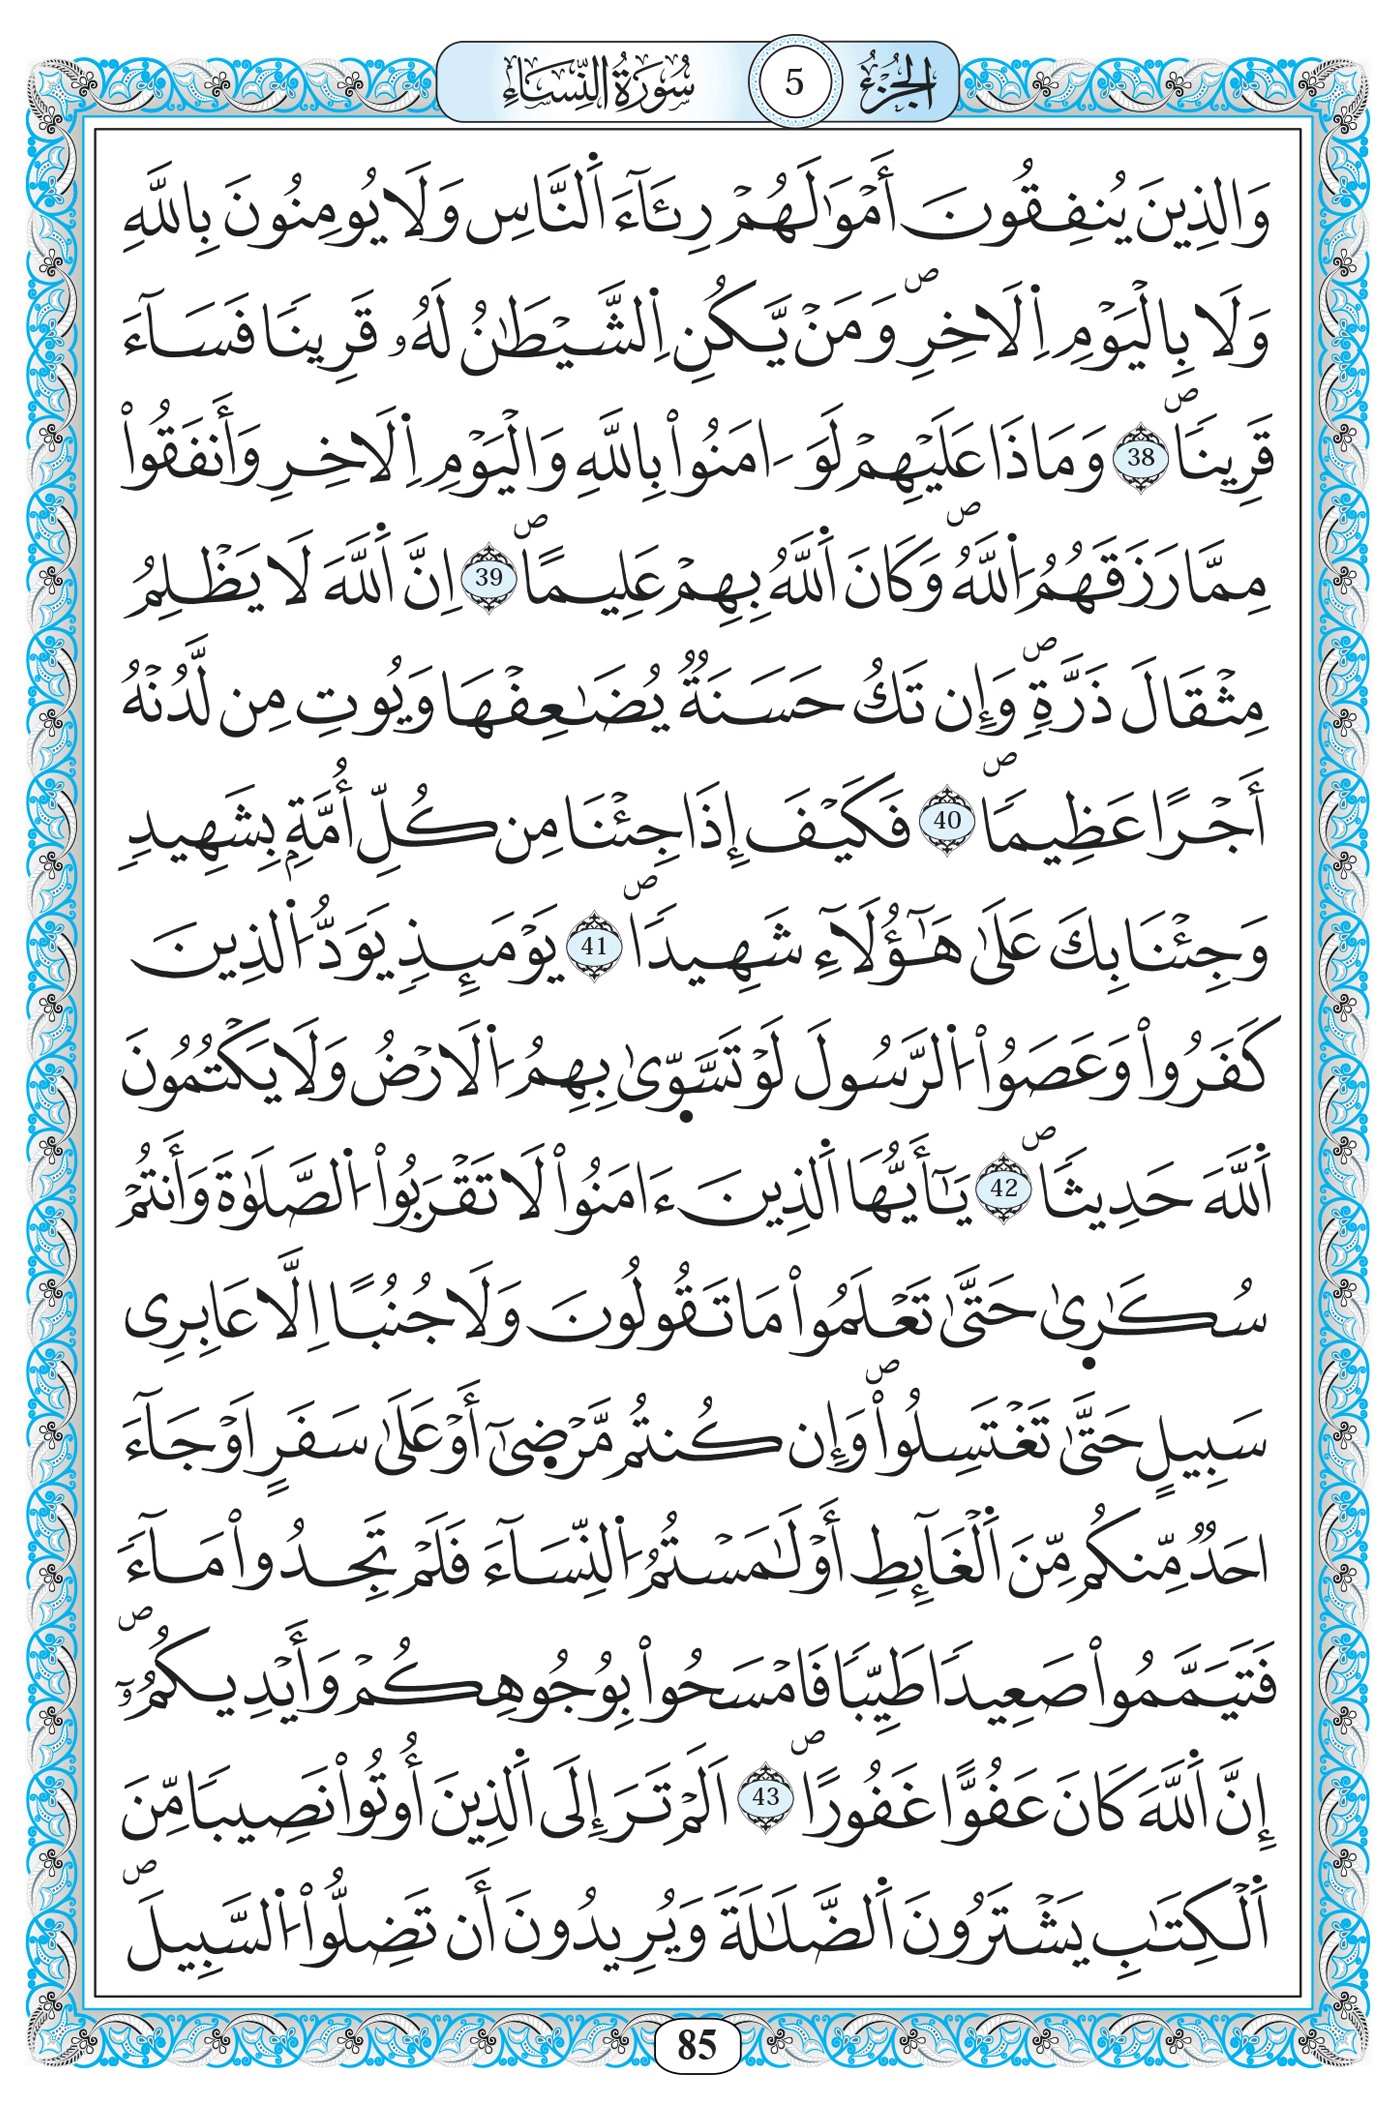 الجزء 5 سورة النساء
وَالذِينَ يُنفِقُونَ أَمْوَٰلَهُمْ رِئَآءَ اَ۬لنَّاسِ وَلَا يُومِنُونَ بِاللَّهِ
وَلَا بِالْيَوْمِ اِ۬لَاخِرِۖ وَمَنْ يَّكُنِ اِ۬لشَّيْطَٰنُ لَهُۥ قَرِيناٗ فَسَآءَ
قَرِيناٗۖ 38 وَمَاذَا عَلَيْهِمْ لَوَ اٰمَنُواْ بِاللَّهِ وَالْيَوْمِ اِ۬لَاخِرِ وَأَنفَقُواْ
مِمَّا رَزَقَهُمُ اُ۬للَّهُۖ وَكَانَ اَ۬للَّهُ بِهِمْ عَلِيماًۖ 39 اِنَّ اَ۬للَّهَ لَا يَظْلِمُ
مِثْقَالَ ذَرَّةٖۖ وَإِن تَكُ حَسَنَةٞ يُضَٰعِفْهَا وَيُوتِ مِن لَّدُنْهُ
أَجْراً عَظِيماٗۖ 40 فَكَيْفَ إِذَا جِئْنَا مِن كُلِّ أُمَّةِۢ بِشَهِيدٖ
وَجِئْنَا بِكَ عَلَىٰ هَٰٓؤُلَآءِ شَهِيداٗۖ 41 يَوْمَئِذٖ يَوَدُّ اُ۬لذِينَ
كَفَرُواْ وَعَصَوُاْ اُ۬لرَّسُولَ لَوْ تَسَّوّ۪ىٰ بِهِمُ اُ۬لَارْضُ وَلَا يَكْتُمُونَ
اَ۬للَّهَ حَدِيثاٗۖ 42 يَٰٓأَيُّهَا اَ۬لذِينَ ءَامَنُواْ لَا تَقْرَبُواْ اُ۬لصَّلَوٰةَ وَأَنتُمْ
سُكَٰر۪ىٰ حَتَّىٰ تَعْلَمُواْ مَا تَقُولُونَ وَلَا جُنُباً اِلَّا عَابِرِى
سَبِيلٍ حَتَّىٰ تَغْتَسِلُواْۖ وَإِن كُنتُم مَّرْض۪ىٰٓ أَوْ عَلَىٰ سَفَرٍ اَوْ جَآءَ
احَدٞ مِّنكُم مِّنَ اَ۬لْغَآئِطِ أَوْ لَٰمَسْتُمُ اُ۬لنِّسَآءَ فَلَمْ تَجِدُواْ مَآءٗ
فَتَيَمَّمُواْ صَعِيداٗ طَيِّباٗ فَامْسَحُواْ بِوُجُوهِكُمْ وَأَيْدِيكُمُۥٓۖ
إِنَّ اَ۬للَّهَ كَانَ عَفُوّاً غَفُوراًۖ 43 اَلَمْ تَرَ إِلَى اَ۬لذِينَ أُوتُواْ نَصِيباٗ مِّنَ
اَ۬لْكِتَٰبِ يَشْتَرُونَ اَ۬لضَّلَٰلَةَ وَيُرِيدُونَ أَن تَضِلُّواْ اُ۬لسَّبِيلَۖ
85